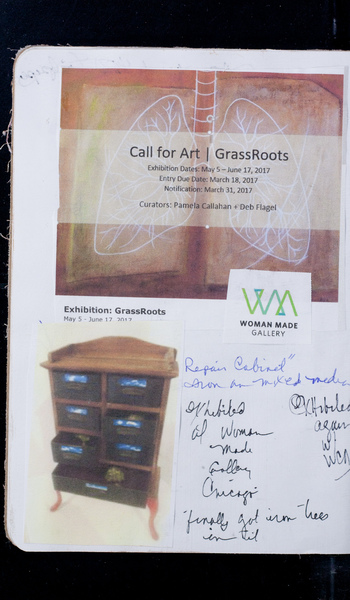 Call for Art | GrassRoots
Exhibition Dates: May 5 – June 17, 2017
Entry Due Date: March 18, 2017
Notification: March 31, 2017
Curators: Pamela Callahan + Deb Flagel
Exhibition: GrassRoots
May 5 - June 17, 2017
WM
WOMAN MADE
GALLERY
Repair Cabinet"
iron an mixed media
Exhibited
at Woman
made
Gallery
Chicago
"finally got iron trees
in it
Exhibited
again